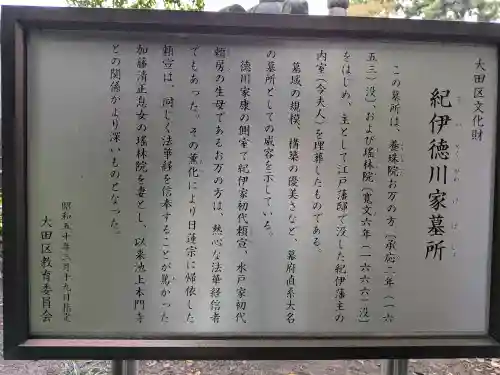 大田区文化財
紀伊徳川家墓所
きいとくがわけぼしょ
この墓所は、養珠院お万の方（承応二年（一六
五三）没）、および瑤林院（寛文六年（一六六六）没）
をはじめ、主として江戸藩邸で没した紀伊藩主の
内室（令夫人）を埋葬したものである。
墓域の規模、構築の優美さなど、幕府直系大名
の墓所としての威容を示している。
徳川家康の側室で紀伊家初代頼宣、水戸家初代
頼房の生母であるお万の方は、熱心な法華経信者
でもあった。その薫化により日蓮宗に帰依した
頼宣は、同じく法華経を信奉することが篤かった
加藤清正息女の瑤林院を妻とし、以来池上本門寺
との関係がより深いものとなった。
昭和五十年三月十九日指定
大田区教育委員会